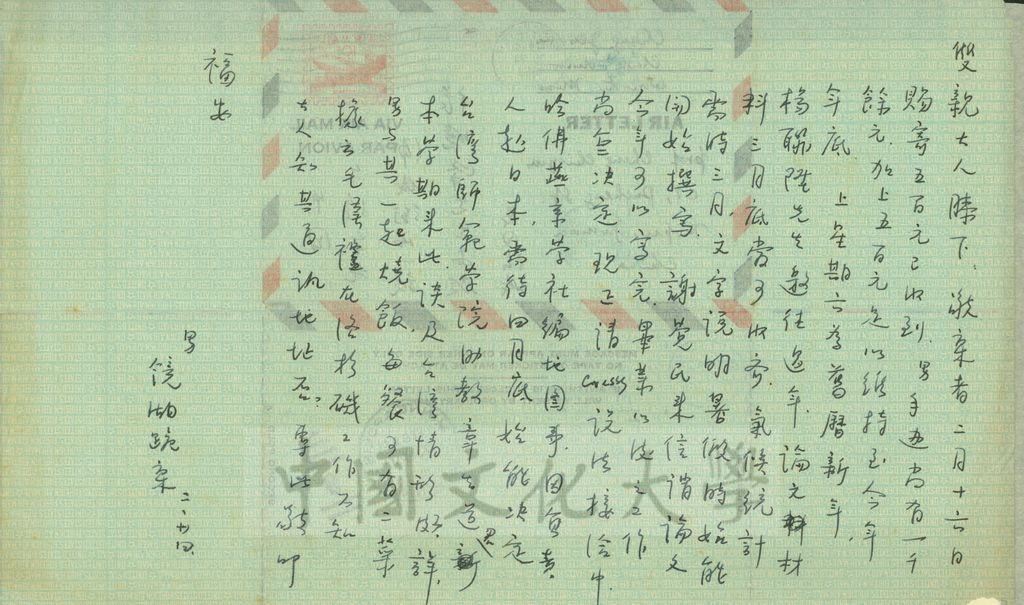 雙親大人膝下:敬稟者二月十六日
賜寄五百元已收到,男手邊尚有一千
餘元,加上五百元足以維持至今年
年底。上星期六為舊曆新年,
楊聯陞先生邀往過年,論文材
料三月底當可收齊,氣候統計
需時三月,文字說明暑假時始能
開始撰寫,謝覺民來信謂論文
今年可以寫完,畢業以後之工作
尚無決定,現正請Cressey設法接洽中,
哈佛燕京學社編地圖事,因負責
人赴日本,需待四月底始能決定,
台灣師範學院助教章生道君於
本學期來此,談及台灣情形頗詳,
男與其一起燒飯,每餐可有二菜,
據云毛漢禮在洛杉磯工作不知
大人知其通訊地址否?專此敬叩
福安
男
鏡湖跪稟
二、廿四
AIR LETTER
VIA AIR MAIL
PAR AVION
中國文化大學